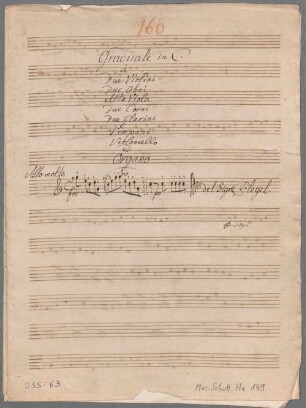 160
Graduale in C.
a
Due Violini
Due Oboi
Alto Viola
Due Corni
Due Clarini
Timpani
Violoncello
ed
Organo
Allo molto
del Sigre Pleyel
DSS-63
Mus. Schott. Ha 149